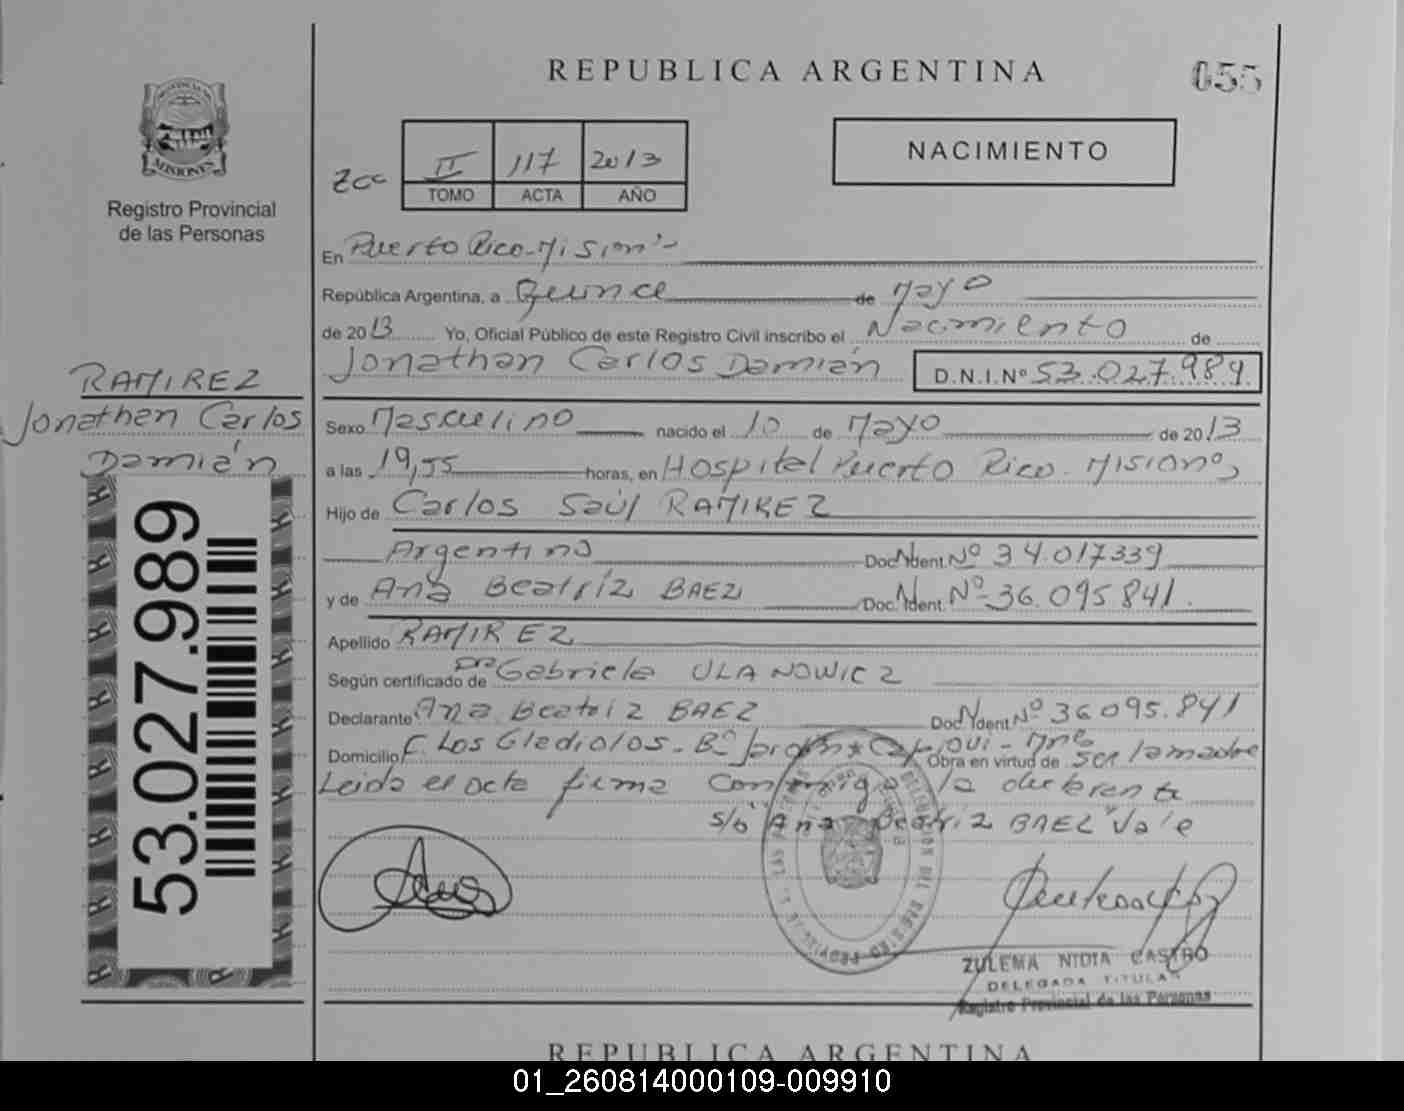 REPUBLICA ARGENTINA
055
MISIONES
Registro Provincial
de las Personas
II 117 2013
TOMO ACTA AÑO
NACIMIENTO
En Puerto Rico-Misiones
República Argentina, a Quince de Mayo
de 2013 Yo, Oficial Público de este Registro Civil inscribo el Nacimiento de
Jonathan Carlos Damián D.N.I.Nº 53.027.989
RAMIREZ
Jonathan Carlos
Damián
53.027.989
Sexo Masculino nacido el 10 de Mayo de 2013
a las 19,55 horas, en Hospital Puerto Rico. Misiones
Hijo de Carlos Saúl RAMIREZ
Argentino Doc. Ident. Nº 34.017339
y de Ana Beatríz BAEZ Doc. Ident. Nº 36.095841.
Apellido RAMIREZ
Según certificado de Dra Gabriela ULANOWICZ
Declarante Ana Beatriz BAEZ Doc. Ident. Nº 36095.841
Domicilio C. Los Gladiolos - Bº Jardín Capioví - Mnes Obra en virtud de ser la madre
Leida el acta firma conmigo la declarante
s/b "Ana Beatríz BAEZ" Vale
ZULEMA NIDIA CASTRO
DELEGADA TITULAR
Registro Provincial de las Personas
REPUBLICA ARGENTINA
01_260814000109-009910